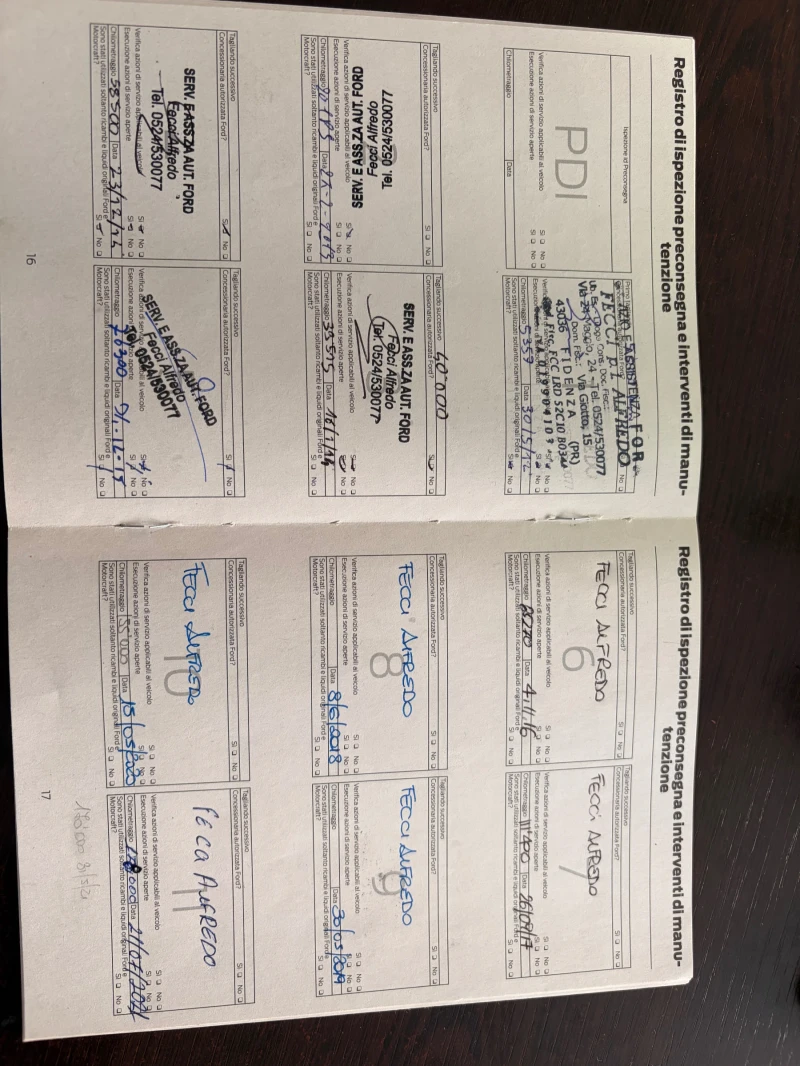 Registro di ispezione preconsegna e interventi di manu-
tenzione
Ispezione id Preconsegna
PDI
Verifica azioni di servizio applicabili al veicolo Sì No
Esecuzione azioni di servizio aperte Sì No
Chilometraggio Data
FECCI ALFREDO
Via 24 - Tel. 0524/530077
Dom. Fisc.: Via Giotto, 15
43036 FIDENZA (PR)
Chilometraggio 5359 Data 30/5/12
Sono stati utilizzati soltanto ricambi e liquidi originali Ford e
Motorcraft? Sì No
Tagliando successivo
Concessionaria autorizzata Ford?
Tel. 0524/530077
Fecci Alfredo
SERV. E ASS.ZA AUT. FORD
Verifica azioni di servizio applicabili al veicolo Sì No
Esecuzione azioni di servizio aperte Sì No
Chilometraggio Data
Sono stati utilizzati soltanto ricambi e liquidi originali Ford e
Motorcraft? Sì No
Tagliando successivo 40000
Concessionaria autorizzata Ford? Sì No
SERV. E ASS.ZA AUT. FORD
Fecci Alfredo
Tel. 0524/530077
Verifica azioni di servizio applicabili al veicolo Sì No
Esecuzione azioni di servizio aperte Sì No
Chilometraggio 39575 Data 16/1/14
Sono stati utilizzati soltanto ricambi e liquidi originali Ford e
Motorcraft? Sì No
Tagliando successivo
Concessionaria autorizzata Ford? Sì No
SERV. E ASS.ZA AUT. FORD
Fecci Alfredo
Tel. 0524/530077
Verifica azioni di servizio applicabili al veicolo Sì No
Esecuzione azioni di servizio aperte Sì No
Chilometraggio 58500 Data 23/12/14
Sono stati utilizzati soltanto ricambi e liquidi originali Ford e
Motorcraft? Sì No
Tagliando successivo
Concessionaria autorizzata Ford? Sì No
SERV. E ASS.ZA AUT. FORD
Fecci Alfredo
Tel. 0524/530077
Chilometraggio Data
Sono stati utilizzati soltanto ricambi e liquidi originali Ford e
Motorcraft? Sì No
16
Registro di ispezione preconsegna e interventi di manu-
tenzione
Tagliando successivo
Concessionaria autorizzata Ford? Sì No
6
FECCI ALFREDO
Verifica azioni di servizio applicabili al veicolo Sì No
Esecuzione azioni di servizio aperte Sì No
Chilometraggio Data 4.11.16
Sono stati utilizzati soltanto ricambi e liquidi originali Ford e
Motorcraft? Sì No
Tagliando successivo
Concessionaria autorizzata Ford? Sì No
7
FECCI ALFREDO
Verifica azioni di servizio applicabili al veicolo Sì No
Esecuzione azioni di servizio aperte Sì No
Chilometraggio 111'400 Data 26/09/17
Sono stati utilizzati soltanto ricambi e liquidi originali Ford e
Motorcraft? Sì No
Tagliando successivo
Concessionaria autorizzata Ford? Sì No
8
FECCI ALFREDO
Verifica azioni di servizio applicabili al veicolo Sì No
Esecuzione azioni di servizio aperte Sì No
Chilometraggio Data 8/6/2018
Sono stati utilizzati soltanto ricambi e liquidi originali Ford e
Motorcraft? Sì No
Tagliando successivo
Concessionaria autorizzata Ford? Sì No
9
FECCI ALFREDO
Verifica azioni di servizio applicabili al veicolo Sì No
Esecuzione azioni di servizio aperte Sì No
Chilometraggio Data 30/05/2019
Sono stati utilizzati soltanto ricambi e liquidi originali Ford e
Motorcraft? Sì No
Tagliando successivo
Concessionaria autorizzata Ford? Sì No
10
FECCI ALFREDO
Verifica azioni di servizio applicabili al veicolo Sì No
Esecuzione azioni di servizio aperte Sì No
Chilometraggio 155'000 Data 15/05/2020
Sono stati utilizzati soltanto ricambi e liquidi originali Ford e
Motorcraft? Sì No
Tagliando successivo
Concessionaria autorizzata Ford? Sì No
11
FECCI ALFREDO
Verifica azioni di servizio applicabili al veicolo Sì No
Esecuzione azioni di servizio aperte Sì No
Chilometraggio Data 21/07/2021
Sono stati utilizzati soltanto ricambi e liquidi originali Ford e
Motorcraft? Sì No
17